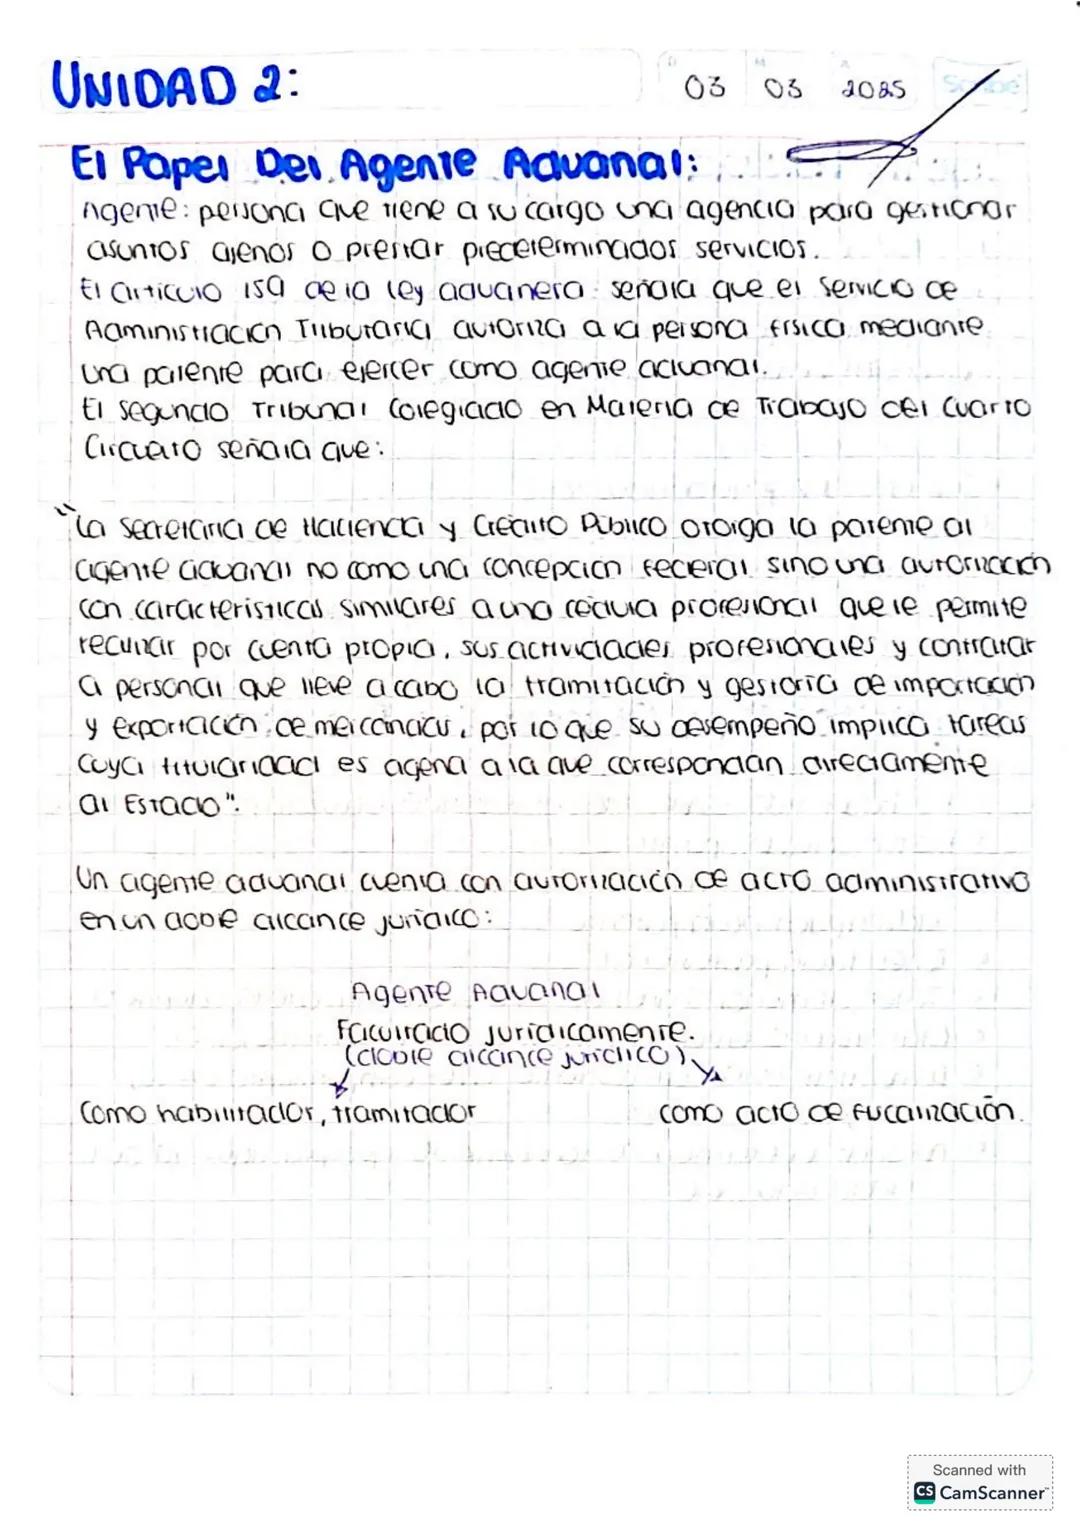 UNIDAD 2:
03 03 2025
El Papel Del Agente Aduanal:
Agente: persona que tiene a su cargo una agencia para gestionar
asuntos ajenos o prestar predeterminados servicios.
El articulo 159 de la ley aduanera señala que el Servicio de
Administración Tributaria autoriza a la persona física mediante
una patente para ejercer como agente aduanal.
El Segundo Tribunal Colegiado en Materia de Trabajo del Cuarto
Circuito señala que:
"La Secretaria de Hacienda y Crédito Público otorga la patente al
agente aduanal no como una concepción federal sino una autorización
con características similares a una cédula profesional que le permite
por cuenta propia, sus actividades profesionales y contratar
a personal que lleve a cabo la tramitación y gestoría de importación
y exportación de mercancías, por lo que su desempeño implica tareas
cuya titularidad es agena a la que correspondan directamente
al Estado".
Un agente aduanal cuenta con autorización de acto administrativo
en un doble alcance jurídico:
Agente Aduanal
Facultado jurídicamente.
(doble alcance jurídico)
Como habilitador, tramitador
como acto de
Scanned with
CS CamScanner